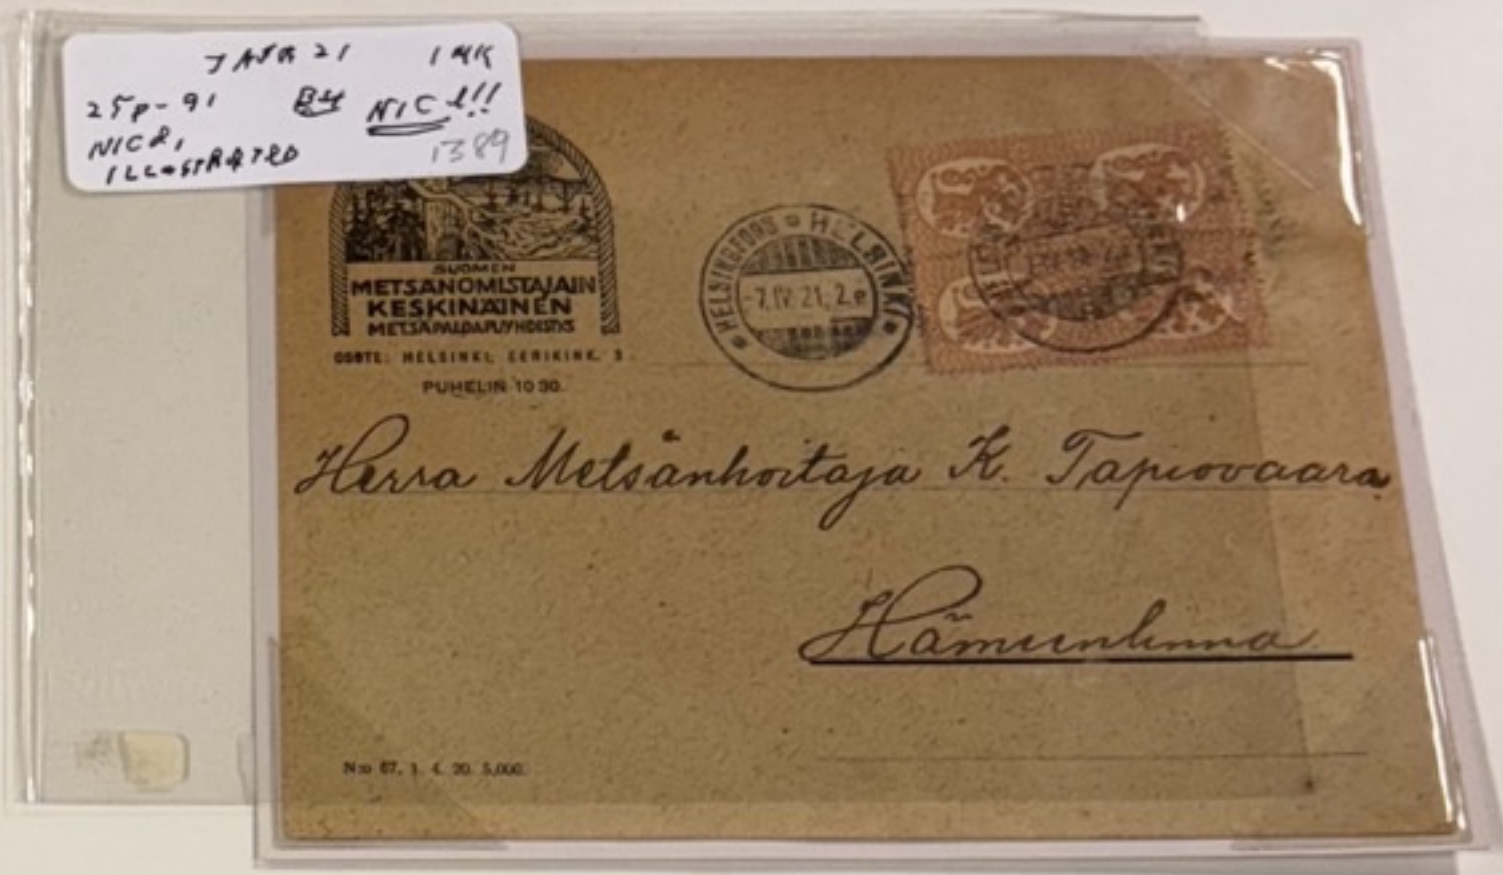 7 APR 21 1 MK
25p - 91 B4 NICE!!
NICE, 1389
ILLUSTRATED
SUOMEN
METSÄNOMISTAJAIN
KESKINÄINEN
METSÄPALOAPUYHDISTYS
OSOTE: HELSINKI, EERIKINK. 3
PUHELIN 10 30.
HELSINGFORS HELSINKI
-7.IV.21.2.e
Herra Metsänhoitaja K. Tapiovaara
Hämeenlinna
N:o 67, 1. 4. 20. 5,000.